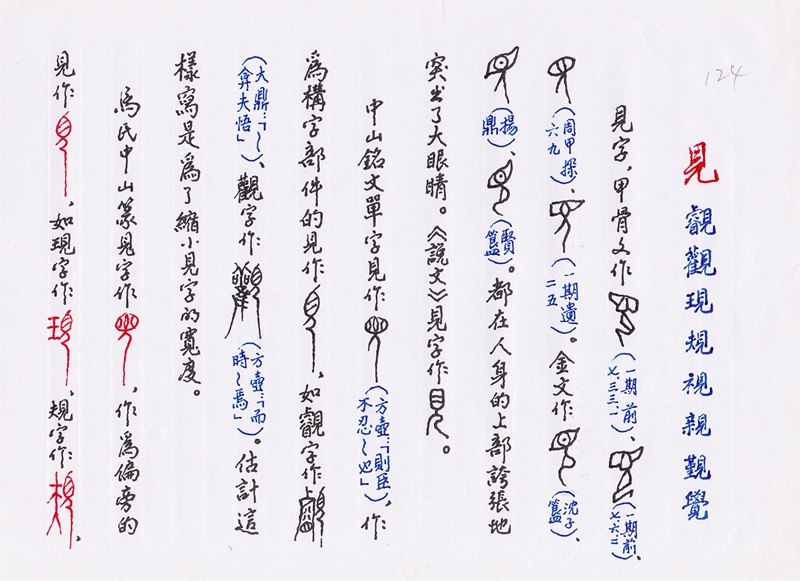 124
見 覩觀現規視親覲覺
見字，甲骨文作（一期前七.三三.一）、（一期前七.六.二）、
（周甲探六九）、（一期遺二五）。金文作（沈子簋）、
（揚鼎）、（賢簋）。都在人身的上部誇張地
突出了大眼睛。《說文》見字作。
中山銘文單字見作（方壺：「則臣不忍～也」），作
爲構字部件的見作，如覩字作
（大鼎：「～弇夫悟」）、觀字作（方壺：「而時～焉」）。估計這
樣寫是爲了縮小見字的寬度。
馬氏中山篆見字作，作爲偏旁的
見作，如現字作，規字作，